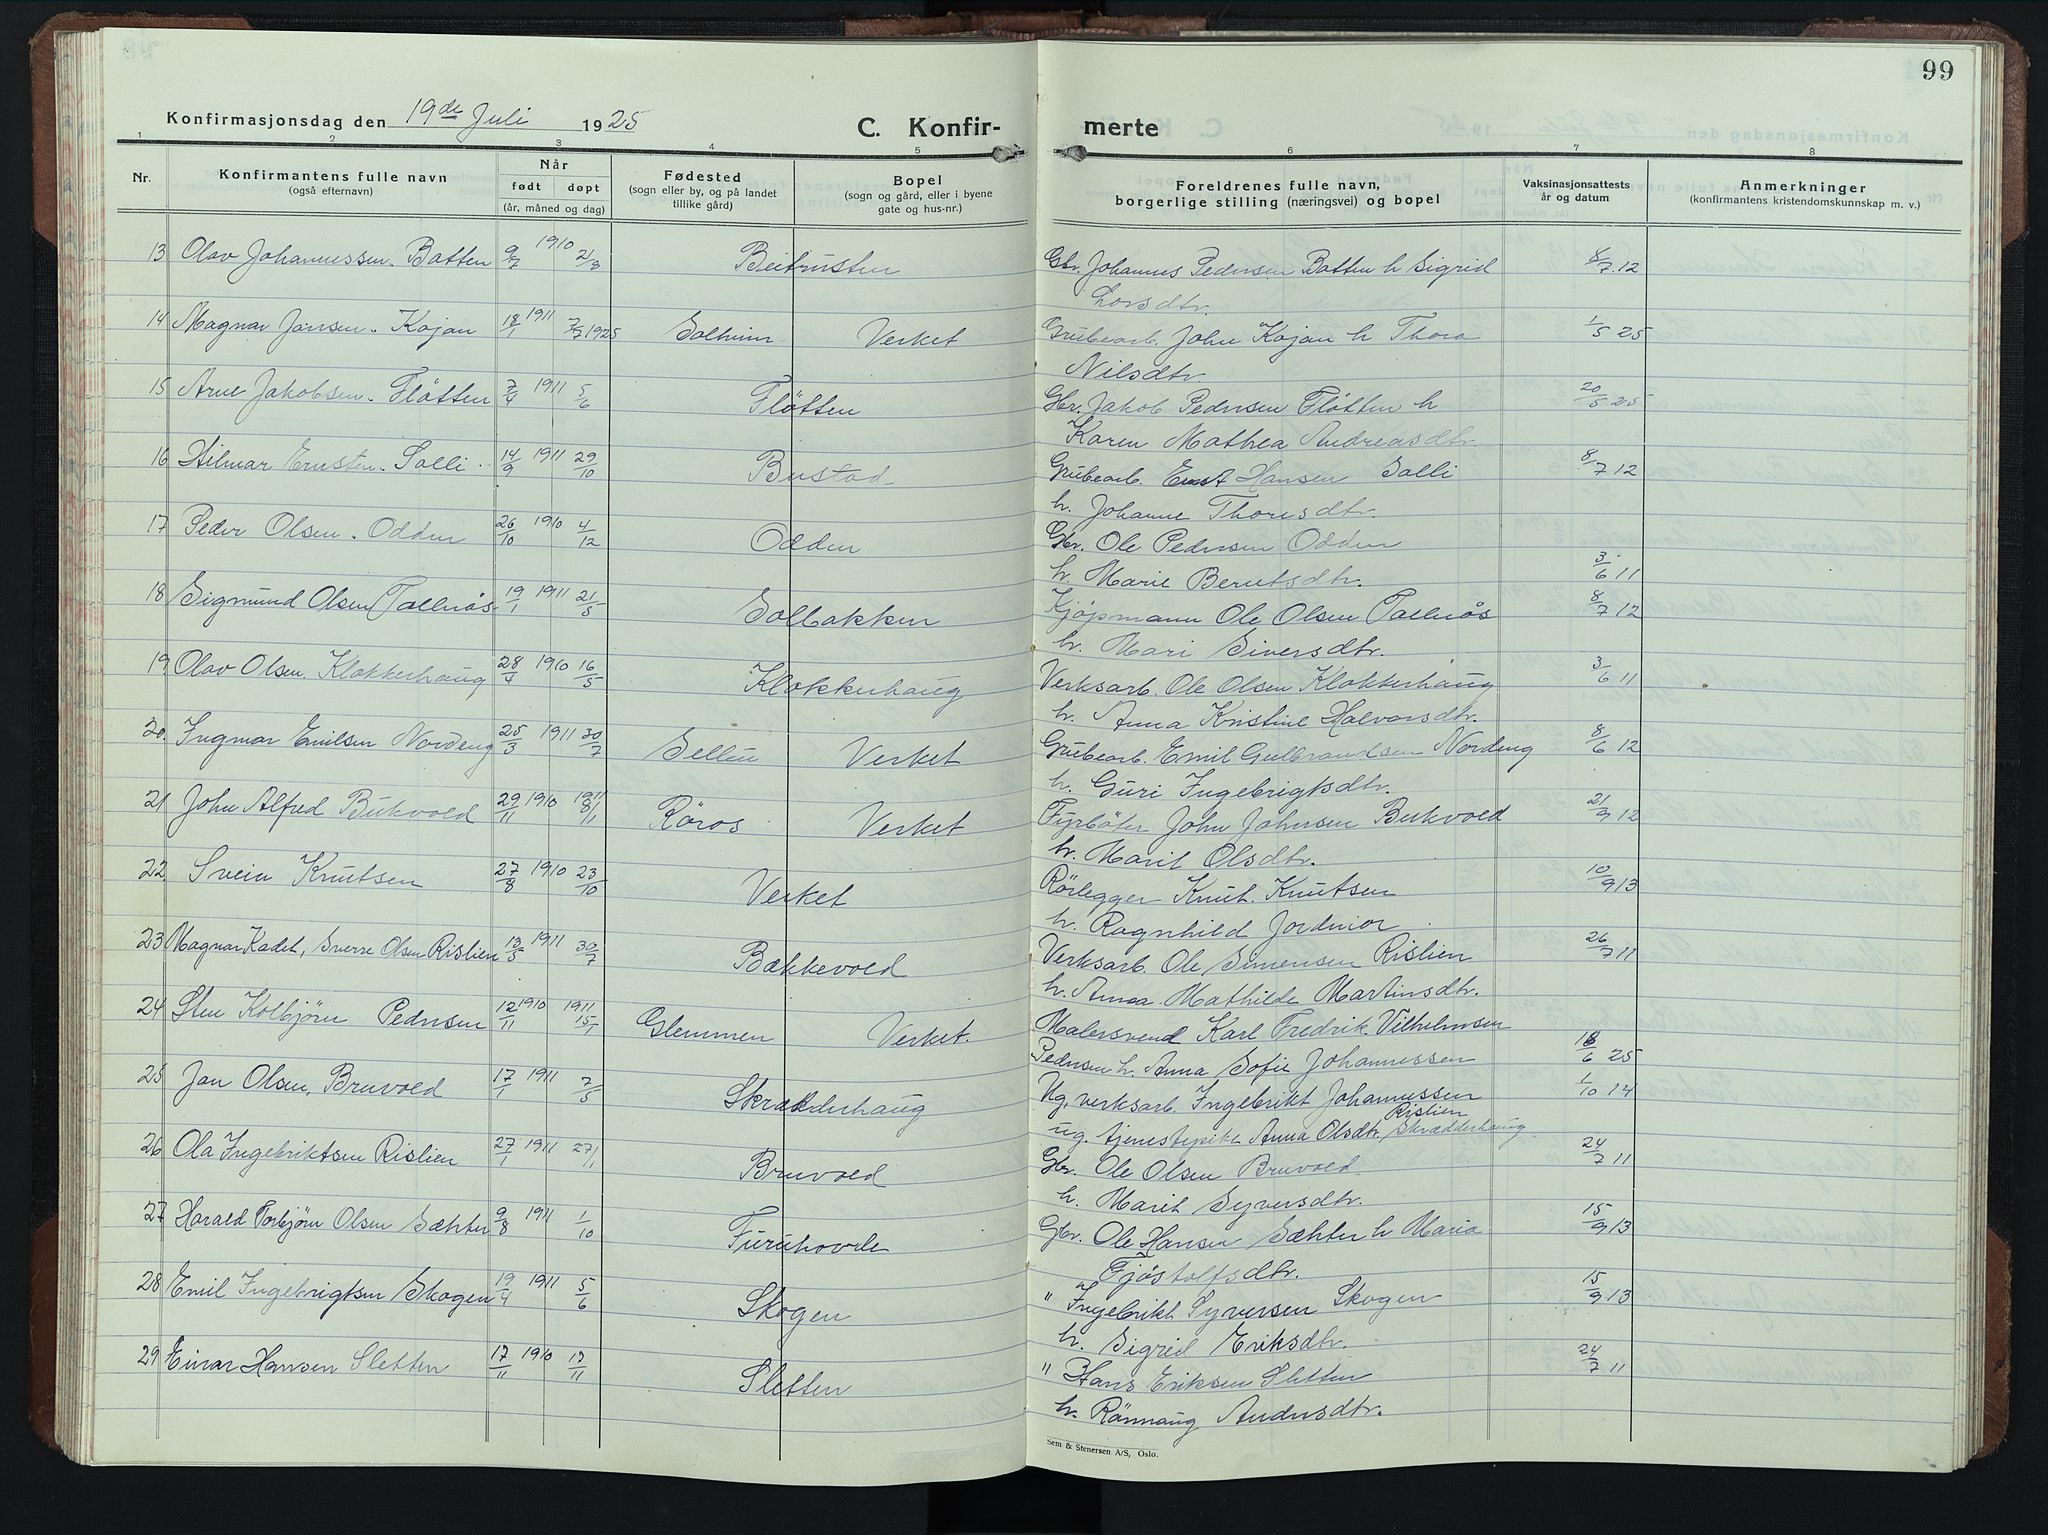 99
Konfirmasjonsdag den 19de Juli 1925 C. Konfir- merte
1 2 3 4 5 6 7 8
Nr. Konfirmantens fulle navn (også efternavn) Når født døpt (år, måned og dag) Fødested (sogn eller by, og på landet tillike gård) Bopel (sogn og gård, eller i byene gate og hus-nr.) Foreldrenes fulle navn, borgerlige stilling (næringsvei) og bopel Vaksinasjonsattests år og datum Anmerkninger (konfirmantens kristendomskunnskap m. v.)
13 Olav Johannessen. Batten 9/7 1910 21/8 Beitrusten Gbr. Johannes Pedersen Batten h Sigrid 8/7 12
Larsdtr.
14 Magnar Jansen. Kojan 18/1 1911 7/5 1925 Solheim Verket Grubearb. John Kojan h Thora 1/5 25
Nilsdtr.
15 Arne Jakobsen. Fløtten 7/4 1911 5/6 Fløtten Gbr. Jakob Pedersen Fløtten h 20/5 25
Karen Mathea Andreasdtr.
16 Hilmar Ernsten. Solli. 14/9 1911 29/10 Bustad Grubearb. Ernst Hansen Solli 8/7 12
h. Johanne Thoresdtr.
17 Peder Olsen. Odden 26/10 1910 4/12 Odden Gbr. Ole Pedersen Odden
h. Marie Berntsdtr. 3/6 11
18 Sigmund Olsen Tallnås. 19/1 1911 21/5 Solbakken Kjøpmann Ole Olsen Tallnås 8/7 12
h. Mari Siversdtr.
19 Olav Olsen. Klokkerhaug 28/4 1910 16/5 Klokkerhaug Verksarb. Ole Olsen Klokkerhaug 3/6 11
h. Anna Kristine Halvorsdtr.
20. Ingmar Emilsen Nordeng 25/3 1911 30/7 Selliu Verket Grubearb. Emil Gulbrandsen Nordeng 8/6 12
h. Guri Ingebrigtsdtr.
21 John Alfred Bukvold 29/11 1910 1911 8/1 Røros Verket Fyrbøter John Johnsen Bukvold 21/9 12
h. Marit Olsdtr.
22. Svein Knutsen 27/8 1910 23/10 Verket Rørlegger Knut. Knutsen 10/9 13
h. Ragnhild Jordmor
23 Magnar Kadet, Sverre Olsen Rislien 13/5 1911 30/7 Bækkevold Verksarb. Ole Simensen Rislien 26/7 11
h. Anna Mathilde Martinsdtr.
24 Sten Kolbjørn Pedersen 12/11 1910 1911 15/1 Glemmen Verket. Malersvend Karl Fredrik Vilhelmsen
Pedersen h. Anna Sofie Johannessen 18/6 25
25 Jan Olsen, Bruvold 17/1 1911 7/5 Skrædderhaug Ug. verksarb. Ingebrikt Johannessen 1/10 14
Rislien
ug. tjenestepike Anna Olsdtr. Skrædderhaug
26 Ola Ingebriktsen Rislien 27/1 1911 27/1 Bruvold Gbr. Ole Olsen Bruvold 24/7 11
h. Marit Syversdtr.
27 Harald Torbjørn Olsen Sæhter 9/8 1911 1/10 Furuhovde Gbr. Ole Hansen Sæhter h Maria 15/9 13
Fjøstolfsdtr.
28 Emil Ingebrigtsen Skogen 19/4 1911 5/6 Skogen " Ingebrikt Syversen Skogen 15/9 13
h. Sigrid Eriksdtr.
29 Einar Hansen Sletten 17/11 1910 17/11 Sletten " Hans Eriksen Sletten 24/7 11
h. Rønnaug Andersdtr.
Sem & Stenersen A/S, Oslo.